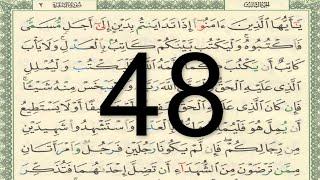 يَٰٓأَيُّهَا ٱلَّذِينَ ءَامَنُوٓا۟ إِذَا تَدَايَنتُم بِدَيْنٍ إِلَىٰٓ أَجَلٍ مُّسَمًّى
فَٱكْتُبُوهُ وَلْيَكْتُب بَّيْنَكُمْ كَاتِبٌۢ بِٱلْعَدْلِ وَلَا يَأْبَ
كَاتِبٌ أَن يَكْتُبَ فَلْيَكْتُبْ وَلْيُمْلِلِ
ٱلَّذِى عَلَيْهِ ٱلْحَقُّ مِنْهُ شَيْـًٔا
فَإِن كَانَ ٱلَّذِى عَلَيْهِ ٱلْحَقُّ أَوْ لَا يَسْتَطِيعُ
أَن يُمِلَّ هُوَ فَلْيُمْلِلْ وَٱسْتَشْهِدُوا۟ شَهِيدَيْنِ
مِن رِّجَالِكُمْ فَإِن لَّمْ يَكُونَا رَجُلَيْنِ فَرَجُلٌ وَٱمْرَأَتَانِ
مِمَّن تَرْضَوْنَ مِنَ ٱلشُّهَدَآءِ أَن تَضِلَّ إِحْدَىٰهُمَا فَتُذَكِّرَ
48